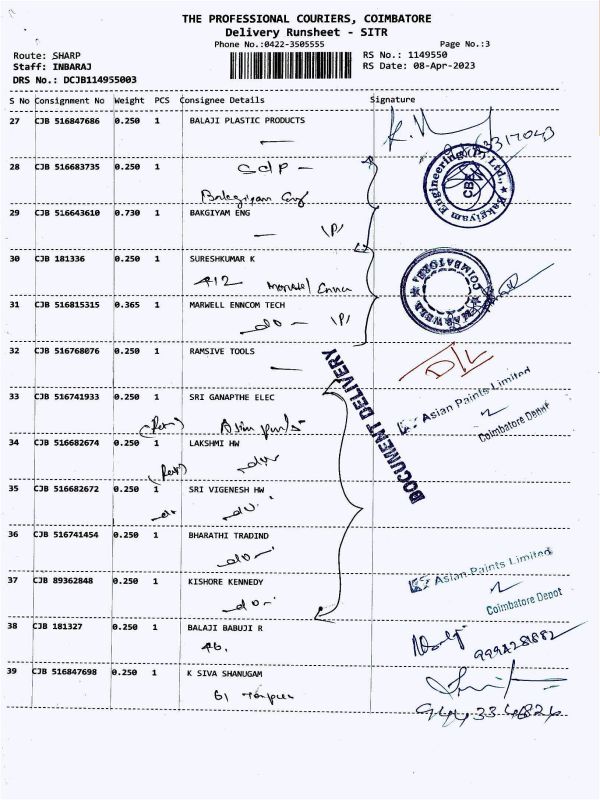 THE PROFESSIONAL COURIERS, COIMBATORE
Delivery Runsheet - SITR
Phone No.:0422-3505555 Page No.:3
Route: SHARP RS No.: 1149550
Staff: INBARAJ RS Date: 08-Apr-2023
DRS No.: DCJB114955003
S No Consignment No Weight PCS Consignee Details Signature
27 CJB 516847686 0.250 1 BALAJI PLASTIC PRODUCTS
28 CJB 516683735 0.250 1
Bakgiyam Eng
29 CJB 516643610 0.730 1 BAKGIYAM ENG
Bakgiyam Engineering (P) Ltd.,
30 CJB 181336 0.250 1 SURESHKUMAR K
412
31 CJB 516815315 0.365 1 MARWELL ENNCOM TECH
do
32 CJB 516768076 0.250 1 RAMSIVE TOOLS
D/L
DOCUMENT DELIVERY
33 CJB 516741933 0.250 1 SRI GANAPTHE ELEC
Asian Paints Limited
Coimbatore Depot
34 CJB 516682674 0.250 1 LAKSHMI HW
35 CJB 516682672 0.250 1 SRI VIGENESH HW
36 CJB 516741454 0.250 1 BHARATHI TRADIND
do
37 CJB 89362848 0.250 1 KISHORE KENNEDY
do
Asian Paints Limited
Coimbatore Depot
38 CJB 181327 0.250 1 BALAJI BABUJI R
39 CJB 516847698 0.250 1 K SIVA SHANUGAM